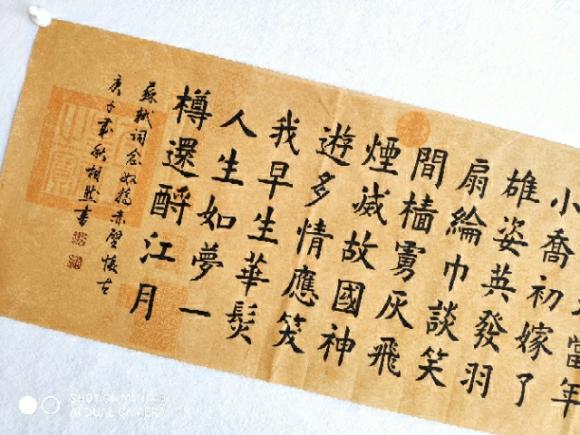 當年
小喬初嫁了
雄姿英發羽
扇綸巾談笑
間檣虜灰飛
煙滅故國神
遊多情應笑
我早生華髮
人生如夢一
樽還酹江月
蘇軾詞念奴嬌赤壁懷古
庚子歲秋相書
SHOT ON MI
AI DUAL CAMERA